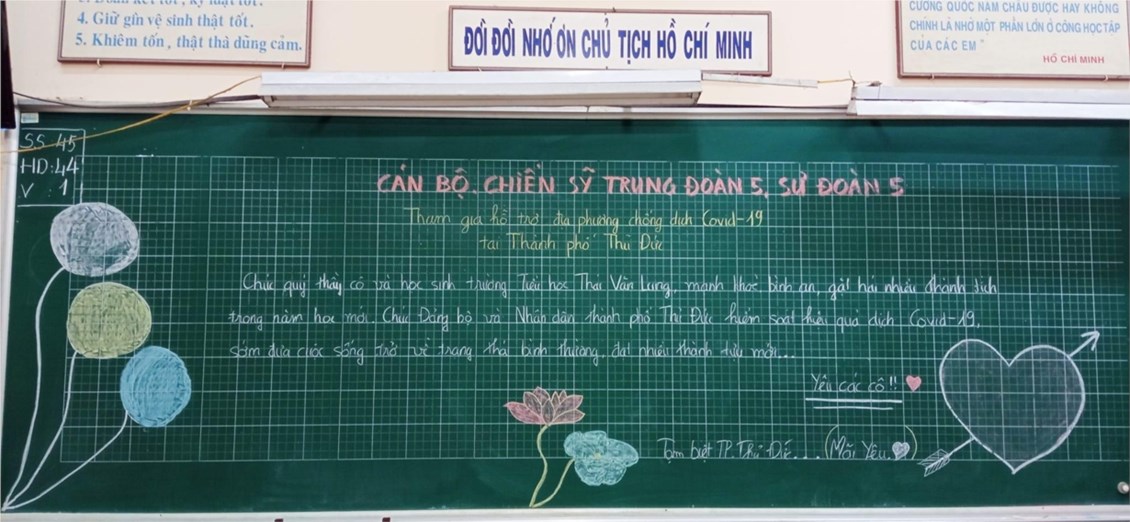 3. Đoàn kết tốt, kỷ luật tốt.
4. Giữ gìn vệ sinh thật tốt.
5. Khiêm tốn, thật thà dũng cảm.
ĐỜI ĐỜI NHỚ ƠN CHỦ TỊCH HỒ CHÍ MINH
CƯỜNG QUỐC NĂM CHÂU ĐƯỢC HAY KHÔNG
CHÍNH LÀ NHỜ MỘT PHẦN LỚN Ở CÔNG HỌC TẬP
CỦA CÁC EM"
HỒ CHÍ MINH
SS 45
HD:44
V 1
CÁN BỘ, CHIẾN SỸ TRUNG ĐOÀN 5, SƯ ĐOÀN 5
Tham gia hỗ trợ địa phương chống dịch Covid-19
tại Thành phố Thủ Đức
Chúc quý thầy cô và học sinh trường Tiểu học Thái Văn Lung, mạnh khỏe bình an, gặt hái nhiều thành tích
trong năm học mới. Chúc Đảng bộ và Nhân dân thành phố Thủ Đức kiểm soát hiệu quả dịch Covid-19,
sớm đưa cuộc sống trở về trạng thái bình thường, đạt nhiều thành tựu mới...
Yêu các cô!!
Tạm biệt TP. Thủ Đức... (Mãi Yêu )